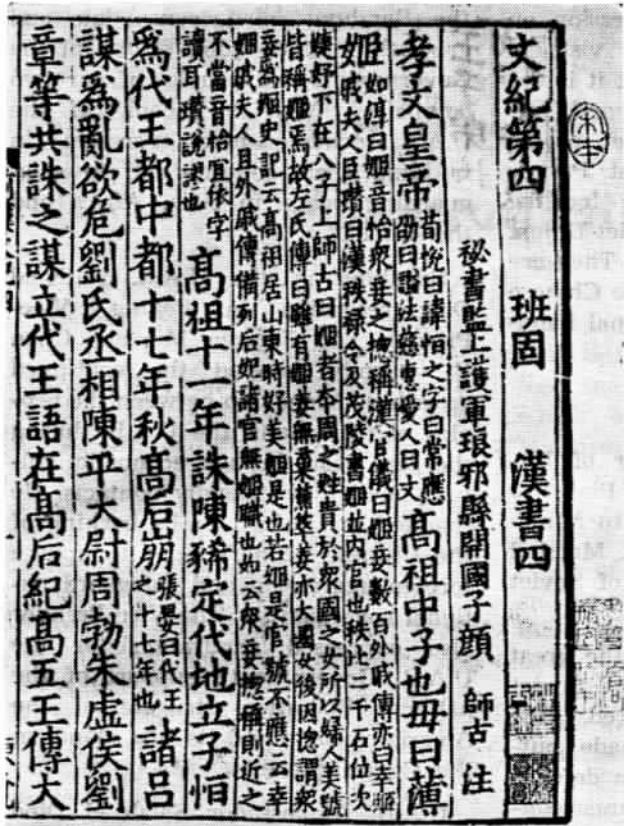 宋本
文紀第四 班固 漢書四
秘書監上護軍琅邪縣開國子顔 師古 注
孝文皇帝
荀悅曰諱恒之字曰常應
劭曰謚法慈惠愛人曰文
髙祖中子也毋曰薄
姬
如淳曰姬音怡衆妾之揔稱漢官儀曰姬妾數百外戚傳亦曰幸姬
戚夫人臣瓚曰漢秩祿令及茂陵書姬並内官也秩比二千石位次
婕妤下在八子上師古曰姬者本周之姓貴於衆國之女所以婦人美號
皆稱姬焉故左氏傳曰雖有姬姜無棄蕉萃姜亦大國女後因揔謂衆
妾爲姬史記云髙祖居山東時好美姬是也若姬是官號不應云幸
姬戚夫人且外戚傳備列后妃諸官無姬職也如云衆妾揔稱則近之
不當音怡宜依字
讀耳瓚說謬也
髙祖十一年誅陳豨定代地立子恒
爲代王都中都十七年秋髙后崩
張晏曰代王
之十七年也
諸呂
謀爲亂欲危劉氏丞相陳平大尉周勃朱虛侯劉
章等共誅之謀立代王語在髙后紀髙五王傳大